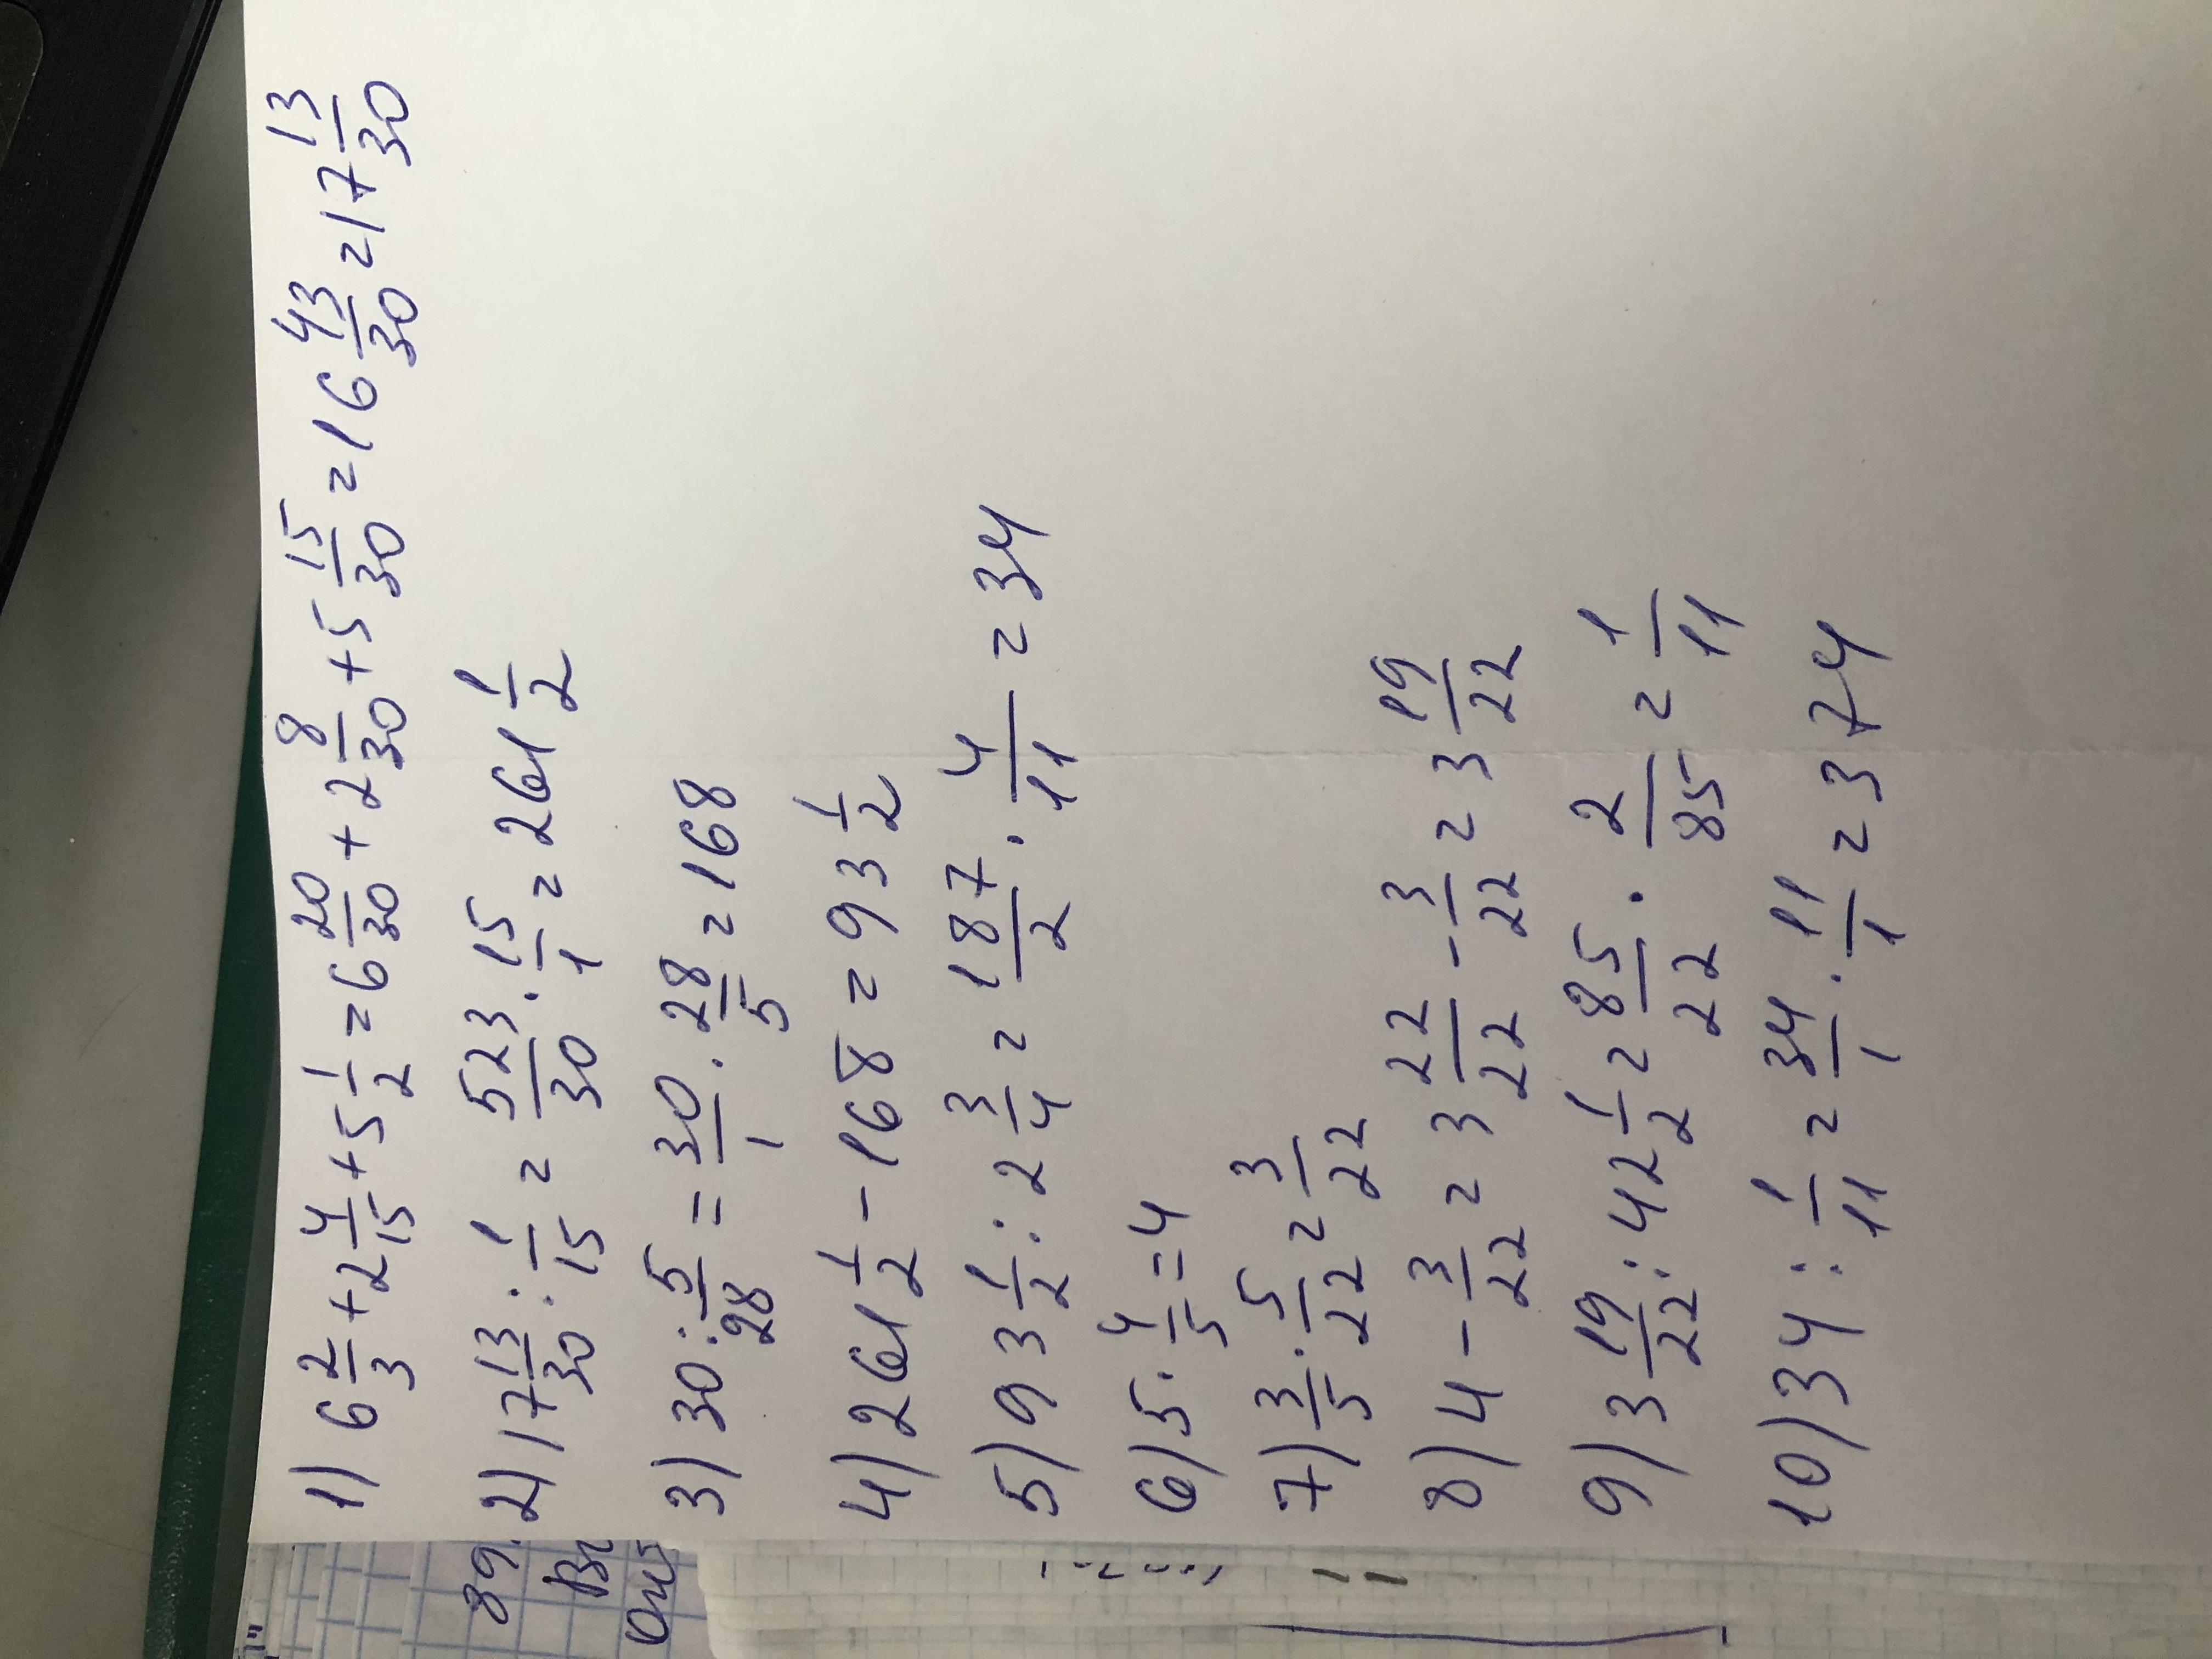 1) 6 2/3 + 2 4/15 + 5 1/2 = 6 20/30 + 2 8/30 + 5 15/30 = 16 43/30 = 17 13/30
2) 17 13/30 : 1/15 = 523/30 · 15/1 = 261 1/2
3) 30 : 5/28 = 30/1 · 28/5 = 168
4) 261 1/2 - 168 = 93 1/2
5) 93 1/2 : 2 3/4 = 187/2 · 4/11 = 34
6) 5 · 4/5 = 4
7) 3/5 · 5/22 = 3/22
8) 4 - 3/22 = 3 22/22 - 3/22 = 3 19/22
9) 3 19/22 : 42 1/2 = 85/22 · 2/85 = 1/11
10) 34 : 1/11 = 34/1 · 11/1 = 374